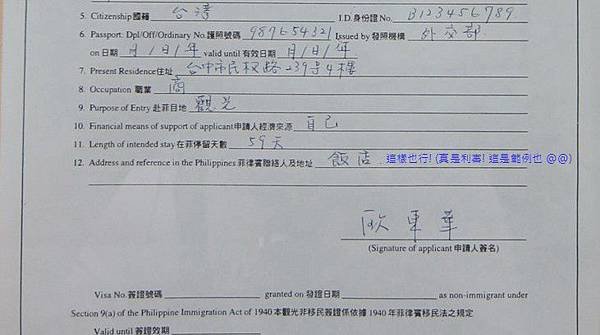 5. Citizenship國籍 台湾 I.D.身份證 No. B123456789
6. Passport: Dpl/Off/Ordinary No.護照號碼 987654321 Issued by發照機構 外交部
on 日期 月/日/年 valid until 有效日期 月/日/年
7. Present Residence住址 台中市民权路239号4樓
8. Occupation 職業 商
9. Purpose of Entry 赴菲目地 觀光
10. Financial means of support of applicant申請人經濟來源 自己
11. Length of intended stay在菲停留天數 59天
12. Address and reference in the Philippines 菲律賓聯絡人及地址 飯店 這樣也行! (真是利害! 這是範例也 @@)
欧東華
(Signature of applicant 申請人簽名)
Visa No.簽證號碼 granted on 發證日期 as non-immigrant under
Section 9(a) of the Philippine Immigration Act of 1940本觀光非移民簽證係依據 1940 年菲律賓移民法之規定
Valid until 簽證效期